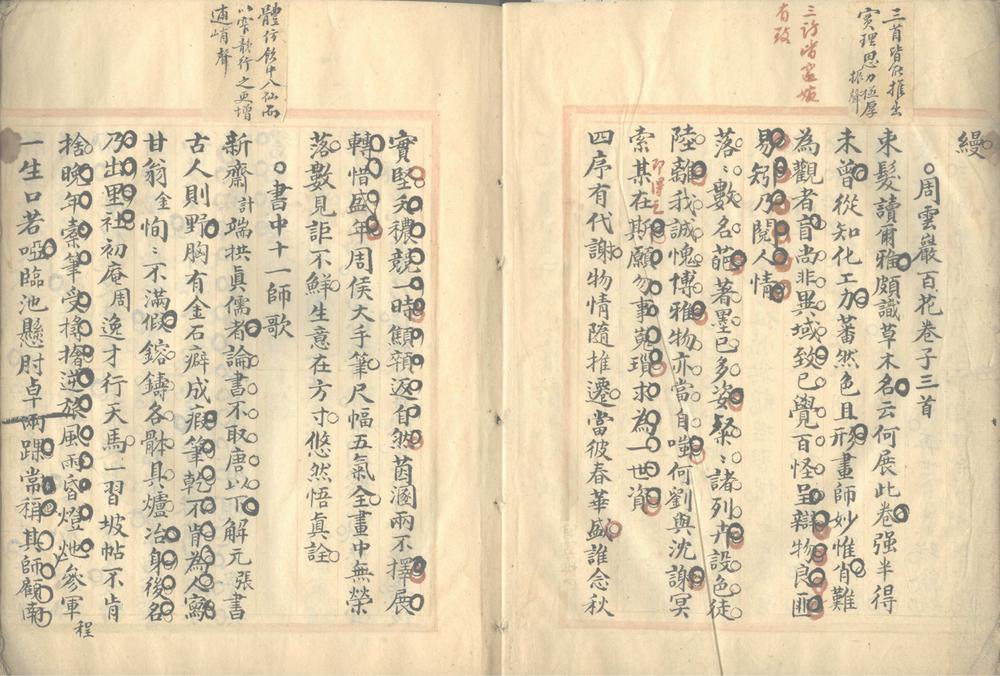 三首皆能推出
實理思力極厚
振聲
三詩皆逕峻
有致
縵
周雲巖百花卷子三首
束髮讀爾雅頗識草木名云何展此卷强半得
未曾從知化工力蕃然色且形畫師妙惟肖難
為觀者盲尚非異域致已覺百怪呈辯物良匪
易矧乃閱人情
落〻數名葩著墨已多姿粲〻諸列卉設色徒
陸離我誠愧博雅物亦當自嗤何劉與沈謝冥
索某在斯願勿事蒐瑣求為一世資
四序有代謝物情隨推遷當彼春華盛誰念秋
實堅多穠競一時顛顇返自然茵溷兩不擇展
轉惜盛年周侯大手筆尺幅五氣全畫中無榮
落數見詎不鮮生意在方寸悠然悟真詮
體仿飲中八仙而
以窄韻行之更增
逋峭聲
書中十一師歌
新齋計端拱真儒者論書不取唐以下解元張書
古人則野胸有金石癖成瘕筆乾不肯為人寫
甘翁金恂〻不滿假鎔鑄各體具爐冶身後名
乃出里社初庵周逸才行天馬一習坡帖不肯
捨晚年橐筆受搏撦逆旅風雨昏燈灺參軍程
一生口若啞臨池懸肘卓兩踝常稱其師顧南